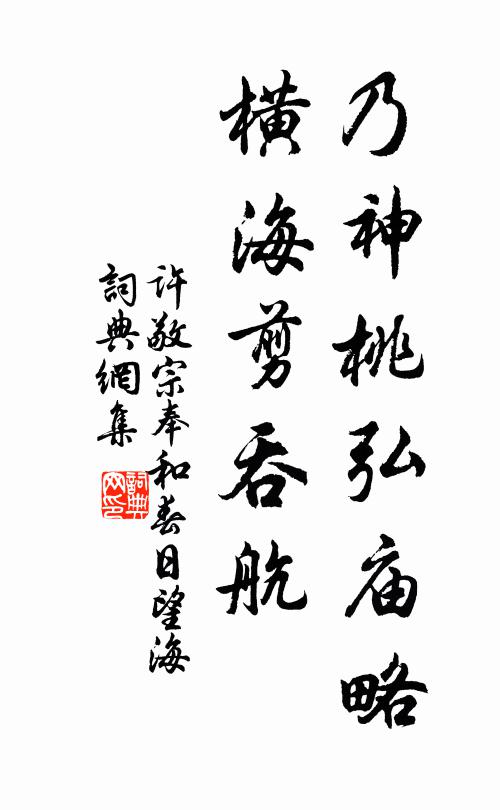 乃神桃弘庙略
橫海剪吞航
許敬宗奉和春日望海
詞典網集
詞典
网印